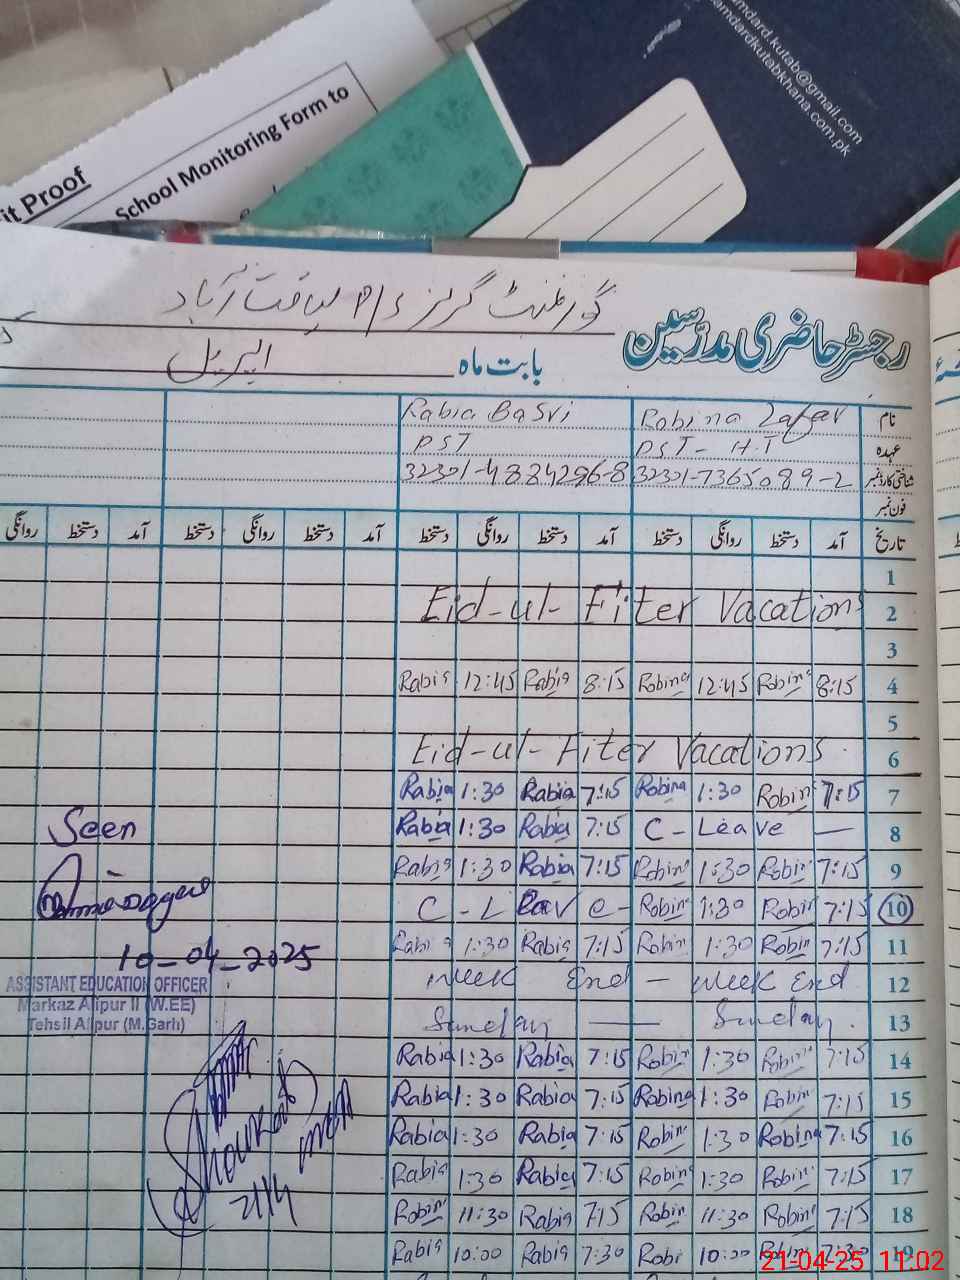 amdard.kutab@gmail.com
amdardkutabkhana.com.pk
it Proof
School Monitoring Form to
گورنمنٹ گرلز P/S لیاقت آباد
رجسٹر حاضری مدرسین
بابت ماہ اپریل
نام Robina Zafar Rabia Basri
عہدہ PST - H.T PST
شناختی کارڈ نمبر 32301-7365089-2 32301-4884296-8
فون نمبر
تاریخ آمد دستخط روانگی دستخط آمد دستخط روانگی دستخط آمد دستخط روانگی دستخط آمد دستخط روانگی
1
Eid-ul-Fiter Vacations 2
3
Rabia 12:45 Rabia 8:15 Robina 12:45 Robina 8:15 4
5
Eid-ul-Fiter Vacations 6
Rabia 1:30 Rabia 7:15 Robina 1:30 Robina 7:15 7
Seen
Rabia 1:30 Rabia 7:15 C-Leave — 8
Rabia 1:30 Rabia 7:15 Robina 1:30 Robina 7:15 9
C-Leave - Robina 1:30 Robin 7:15 10
Rabia 1:30 Rabia 7:15 Robin 1:30 Robin 7:15 11
10-04-2025
ASSISTANT EDUCATION OFFICER
Markaz Alipur II (W.EE)
Tehsil Alipur (M.Garh)
week End — week End 12
Sunday — Sunday 13
Rabia 1:30 Rabia 7:15 Robin 1:30 Robin 7:15 14
Rabia 1:30 Rabia 7:15 Robina 1:30 Robin 7:15 15
Rabia 1:30 Rabia 7:15 Robin 1:30 Robina 7:15 16
Rabia 1:30 Rabia 7:15 Robina 1:30 Robin 7:15 17
Robin 11:30 Rabia 7:15 Robin 11:30 Robin 7:15 18
Rabia 10:00 Rabia 7:30 Robi 10:00 Robin 7:30 19
Shoukat
MEA
21/4
21-04-25 11:02